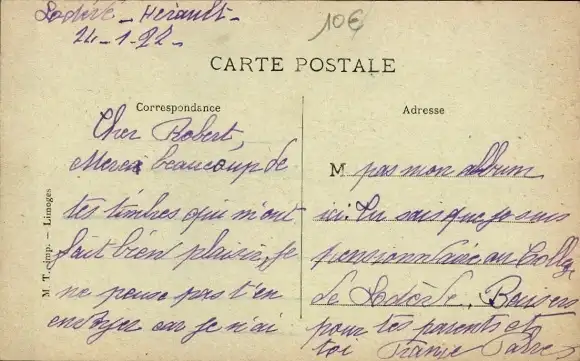 Lodève - Hérault -
24 - 1 - 22 -
10€
CARTE POSTALE
Correspondance
Adresse
M. T., imp. — Limoges
Cher Robert,
Merci beaucoup de
tes timbres qui m'ont
fait bien plaisir, je
ne pense pas t'en
envoyer car je n'ai
M pas mon album
ici. Tu sais que je suis
pensionnaire au Collège
de Lodève. Bonsers
pour tes parents et
toi